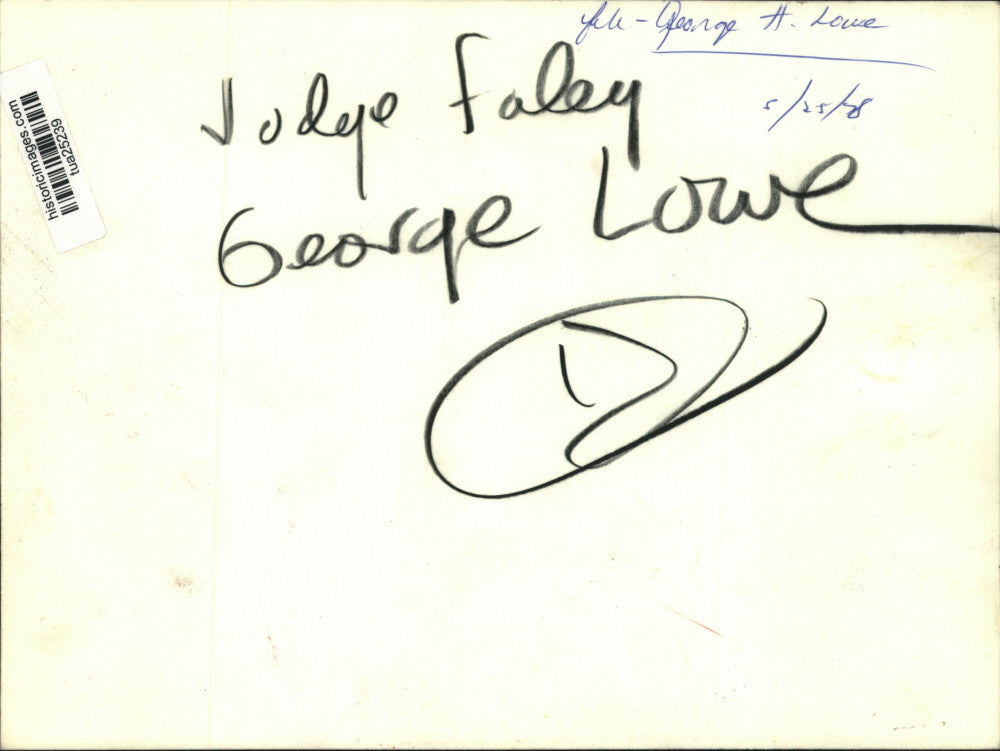 file - George H. Lowe
5/25/78
Judge Foley
George Lowe
D
historicimages.com
tua25239